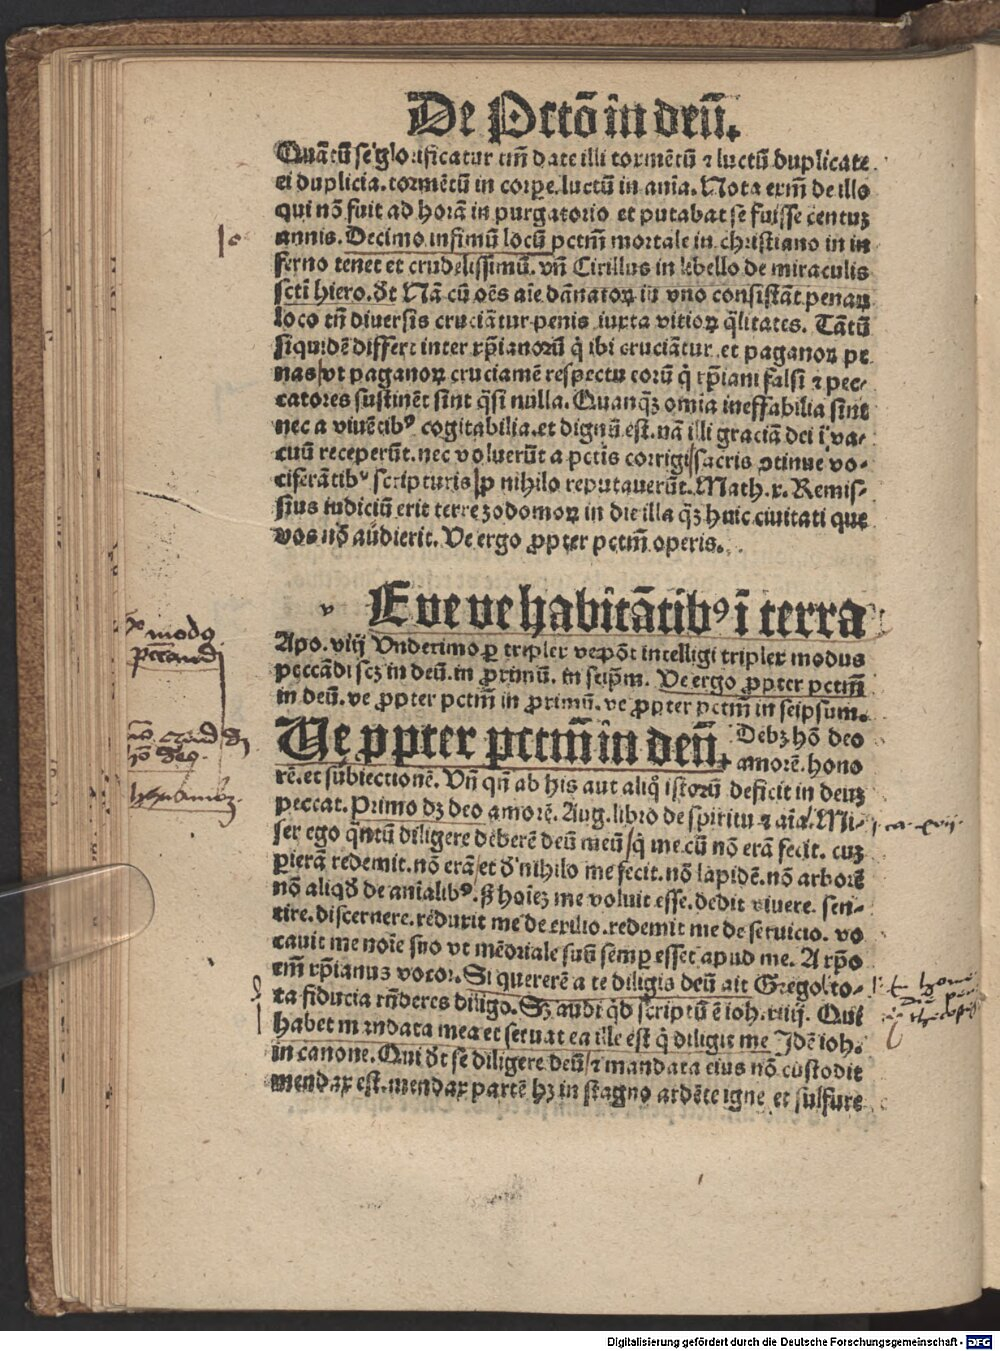 De Pctō in deū.
Quātū se glorificatur tm̄ date illi tormētū ⁊ luctū duplicate
ei duplicia. tormētū in corpe. luctū in aīa. Nota exm̄ de illo
qui nō fuit ad horā in purgatorio et putabat se fuisse centuꝫ
annis. Decimo infimū locū pctm̄ mortale in christiano in in
ferno tenet et crudelissimū. vn̄ Cirillus in lebello de miraculis
scti hiero. dt Nā cū oēs aīe dānatoꝝ in vno consistāt penaꝝ
loco tn̄ diuersis cruciātur penis iuxta vitioꝝ q̄litates. Tātū
siquidē differt inter xp̄ianorū q̇ ibi cruciātur et paganoꝝ pe
nas/vt paganoꝝ cruciamē respectu eorū q̇ xp̄iani falsi ⁊ pec-
catores sustinēt sint q̄si nulla. Quanqꝫ omia ineffabilia sint
nec a viuētibꝰ cogitabilia. et dignū est. nā illi graciā dei ī va-
cuū receperūt. nec voluerūt a pctis corrigi/sacris ꝯtinue vo-
ciferātibꝰ scripturis/ꝓ nihilo reputauerūt. Math. x. Remis-
sius iudiciū erit terre zodomoꝝ in die illa qꝫ huic ciuitati que
vos nō audierit. Ve ergo ꝓpter pctm̄ operis.
E ve ve habitātibꝰ ī terra
Apo. viij Vndecimo ꝑ triplex ve pōt intelligi triplex modus
peccādi scꝫ in deū. in ꝓximū. in seip̄m. Ve ergo ꝓpter pctm̄
in deū. ve ꝓpter pctm̄ in ꝓximū. ve ꝓpter pctm̄ in seipsum.
Ve ꝓpter pctm̄ in deū. Debꝫ hō deo
amorē. hono
rē. et subiectionē. Vn̄ qn̄ ab his aut aliq̇ istorū deficit in deuꝫ
peccat. Primo dꝫ deo amorē. Aug. libro de spiritu ⁊ aīa. Mi-
ser ego q̄ntū diligere deberē deū meū/q̇ me cū nō erā fecit. cuꝫ
ꝑierā redemit. nō erā/et d' nihilo me fecit. nō lapidē. nō arborē
nō aliqd de aīalibꝰ. ẜ hoīeꝫ me voluit esse. dedit viuere. sen-
tire. discernere. reduxit me de exilio. redemit me de seruicio. vo
cauit me noīe suo vt mēoriale suū semꝑ esset apud me. A xp̄o
em̄ xp̄ianus vocor. Si quererē a te diligis deū ait Grego/to-
ta fiducia rn̄deres diligo. Sꝫ audi qd scriptū ē ioh. xiiij. Qui
habet mandata mea et seruat ea ille est q̇ diligit me Idē ioh.
in canone. Qui dt se diligere deū/⁊ mandata eius nō custodit
mendax est. mendax partē hꝫ in stagno ardēte igne et sulfure
Digitalisierung gefördert durch die Deutsche Forschungsgemeinschaft - DFG